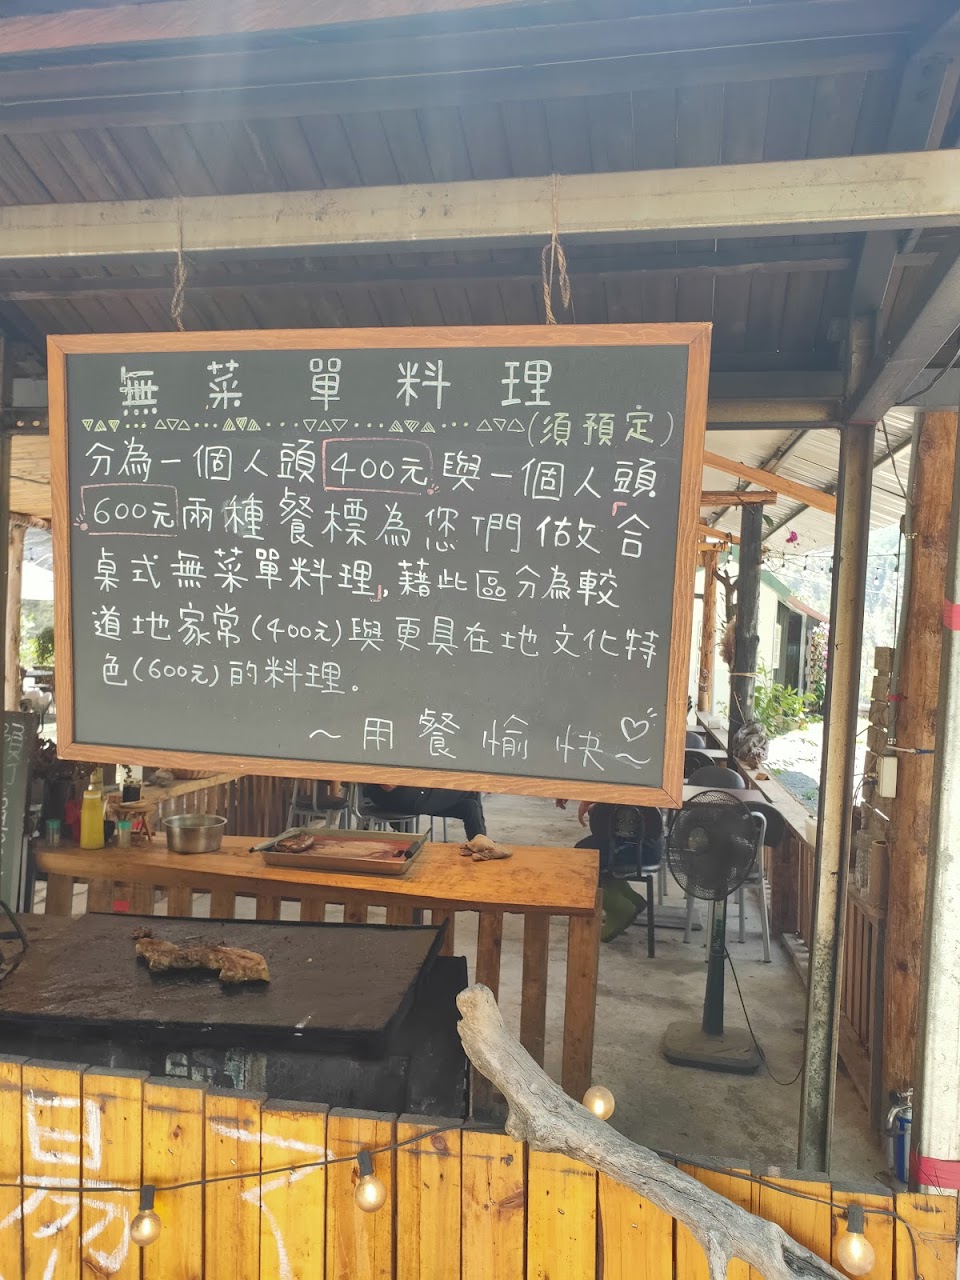 無菜單料理
(須預定)
分為一個人頭400元與一個人頭
600元兩種餐標為您們做「合
桌式無菜單料理」,藉此區分為較
道地家常(400元)與更具在地文化特
色(600元)的料理。
~用餐愉快♡~